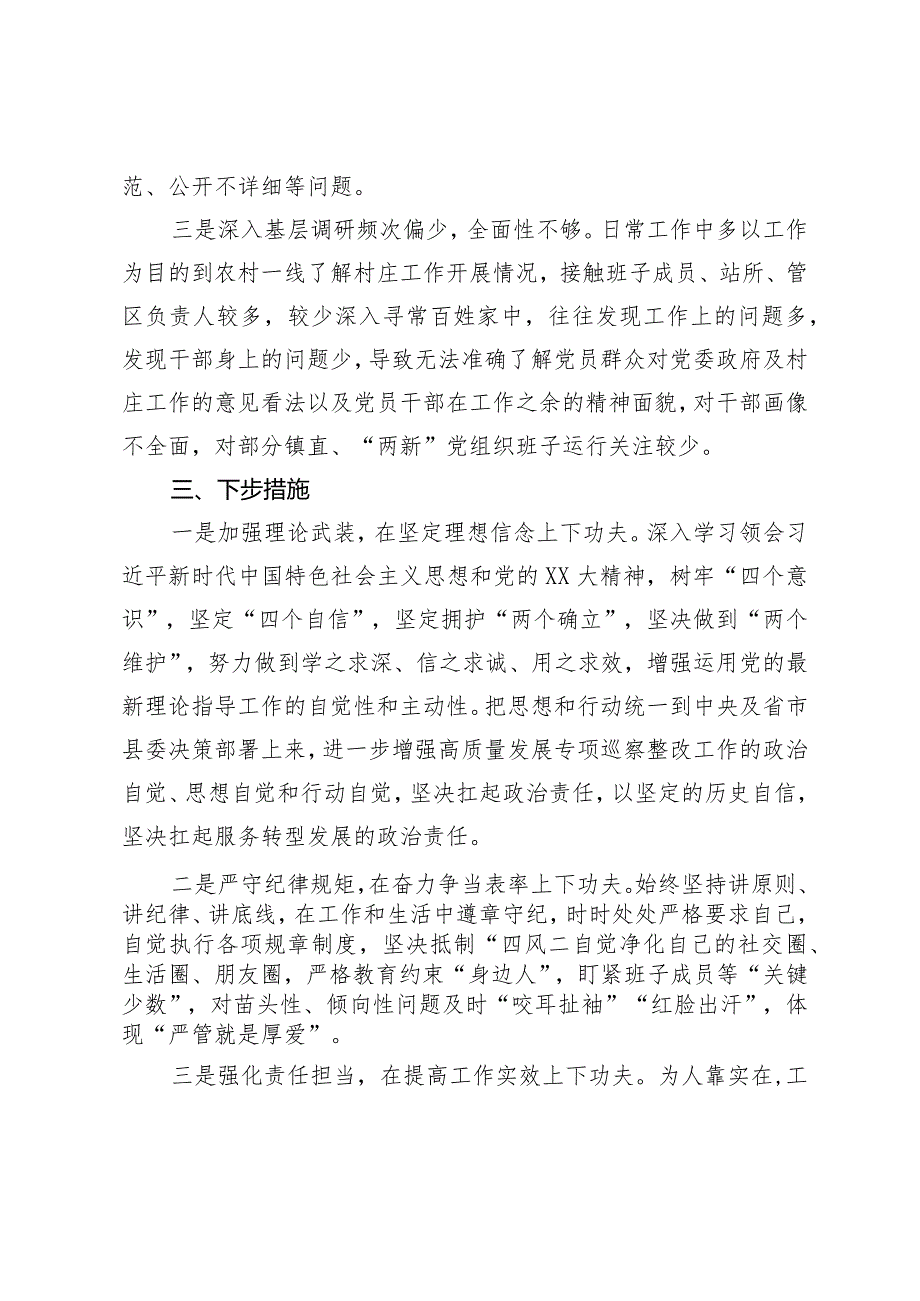 范、公开不详细等问题。
三是深入基层调研频次偏少，全面性不够。日常工作中多以工作
为目的到农村一线了解村庄工作开展情况，接触班子成员、站所、管
区负责人较多，较少深入寻常百姓家中，往往发现工作上的问题多，
发现干部身上的问题少，导致无法准确了解党员群众对党委政府及村
庄工作的意见看法以及党员干部在工作之余的精神面貌，对干部画像
不全面，对部分镇直、“两新”党组织班子运行关注较少。
三、下步措施
一是加强理论武装，在坚定理想信念上下功夫。深入学习领会习
近平新时代中国特色社会主义思想和党的XX大精神，树牢“四个意
识”，坚定“四个自信”，坚定拥护“两个确立”，坚决做到“两个
维护”，努力做到学之求深、信之求诚、用之求效，增强运用党的最
新理论指导工作的自觉性和主动性。把思想和行动统一到中央及省市
县委决策部署上来，进一步增强高质量发展专项巡察整改工作的政治
自觉、思想自觉和行动自觉，坚决扛起政治责任，以坚定的历史自信，
坚决扛起服务转型发展的政治责任。
二是严守纪律规矩，在奋力争当表率上下功夫。始终坚持讲原则、
讲纪律、讲底线，在工作和生活中遵章守纪，时时处处严格要求自己，
自觉执行各项规章制度，坚决抵制“四风二自觉净化自己的社交圈、
生活圈、朋友圈，严格教育约束“身边人”，盯紧班子成员等“关键
少数”，对苗头性、倾向性问题及时“咬耳扯袖”“红脸出汗”，体
现“严管就是厚爱”。
三是强化责任担当，在提高工作实效上下功夫。为人靠实在,工